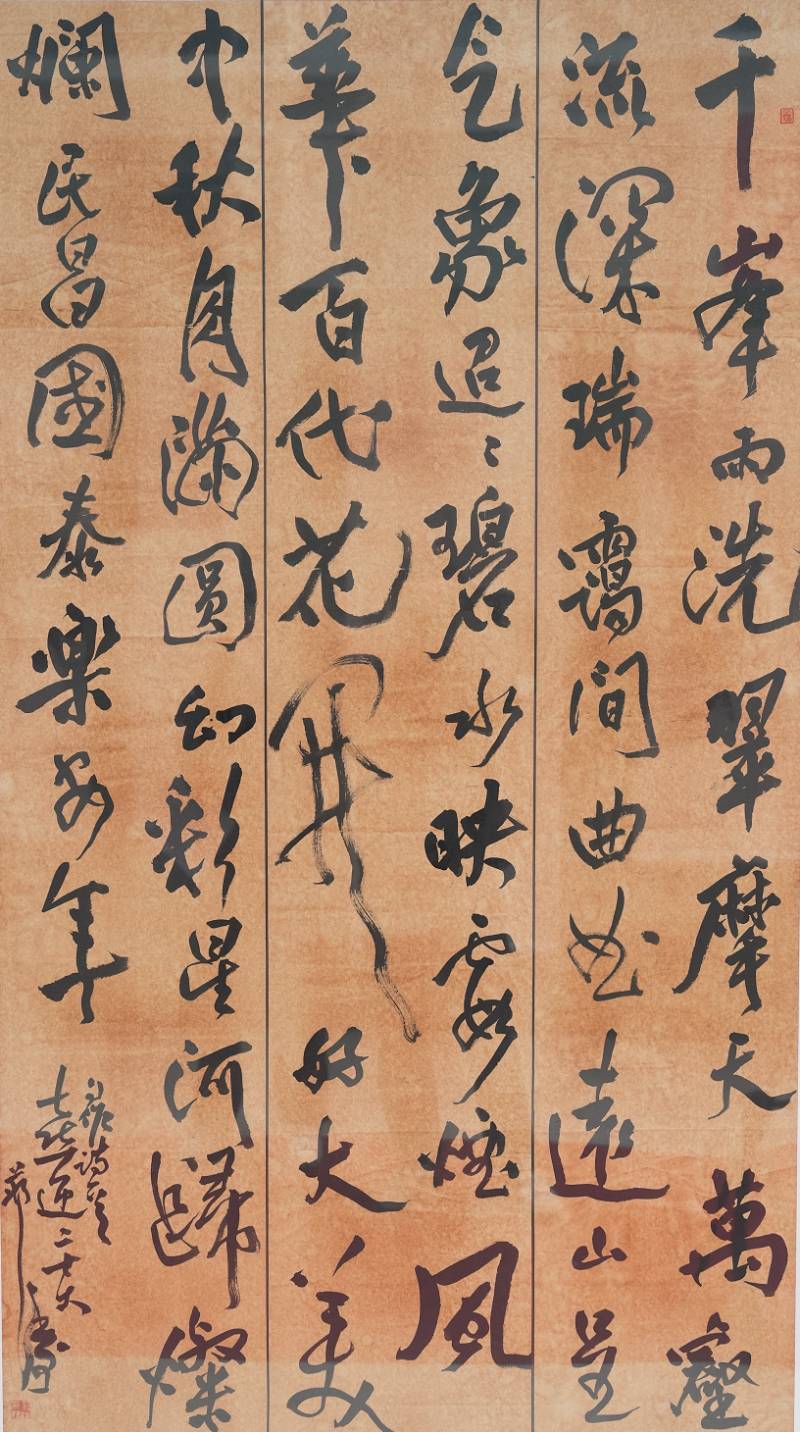 千峯雨洗翠摩天萬壑
流深瑞靄間曲曲遠山呈
气象迢〻碧水映霞烟風
華百代花開好大美
中秋月滿圓幻彩星河歸燦
爛民昌國泰樂安年
自作詩
七律喜迎二十大